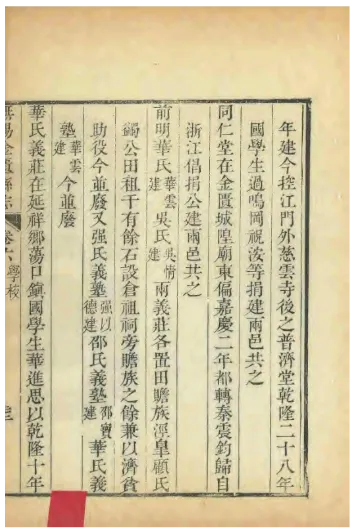 年建今控江門外慈雲寺後之普濟堂乾隆二十八年
國學生過鳴岡祝等捐建兩邑共之
同仁堂在金匱城隍廟東偏嘉慶二年都轉秦震鈞歸自
浙江倡捐公建兩邑共之
前明華氏華雲建吳氏吳情建兩義莊各置田贍族涇臯顧氏
蠲公田租千有餘石設倉祖祠旁贍族之餘兼以濟貧
助役今並廢又强氏義塾强以德建邵氏義塾邵寶建華氏義
塾華雲建今並廢
華氏義莊在延祥鄉蕩口鎮國學生華進思以乾隆十年
錫金匱縣志 卷六 學校